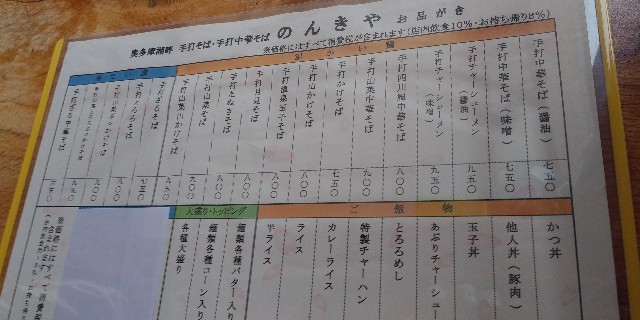 奥多摩湖畔 手打そば・手打中華そば のんきや お品がき
※価格にはすべて消費税が含まれます(店内飲食10%・お持ち帰り8%)
温かい麺
手打中華そば(醤油) 七五〇
手打中華そば(味噌) 七五〇
手打チャーシューメン(醤油) 九五〇
手打チャーシューメン(味噌) 九五〇
手打四川風中華そば 八〇〇
手打山菜中華そば 九〇〇
手打かけそば 七五〇
手打山かけそば 九〇〇
手打温泉玉子そば 八〇〇
手打月見そば 八〇〇
手打たぬきそば 八〇〇
手打山菜そば 九〇〇
手打山菜山かけそば 九五〇
手打ざるそば 七五〇
手打とろろそば 九〇〇
ご飯物
かつ丼
他人丼(豚肉)
玉子丼
あぶりチャーシュー
とろろめし
特製チャーハン
カレーライス
ライス
半ライス
大盛り・トッピング
麺類各種バター入り
麺類各種コーン入り
各種大盛り
※価格にはすべて消費税